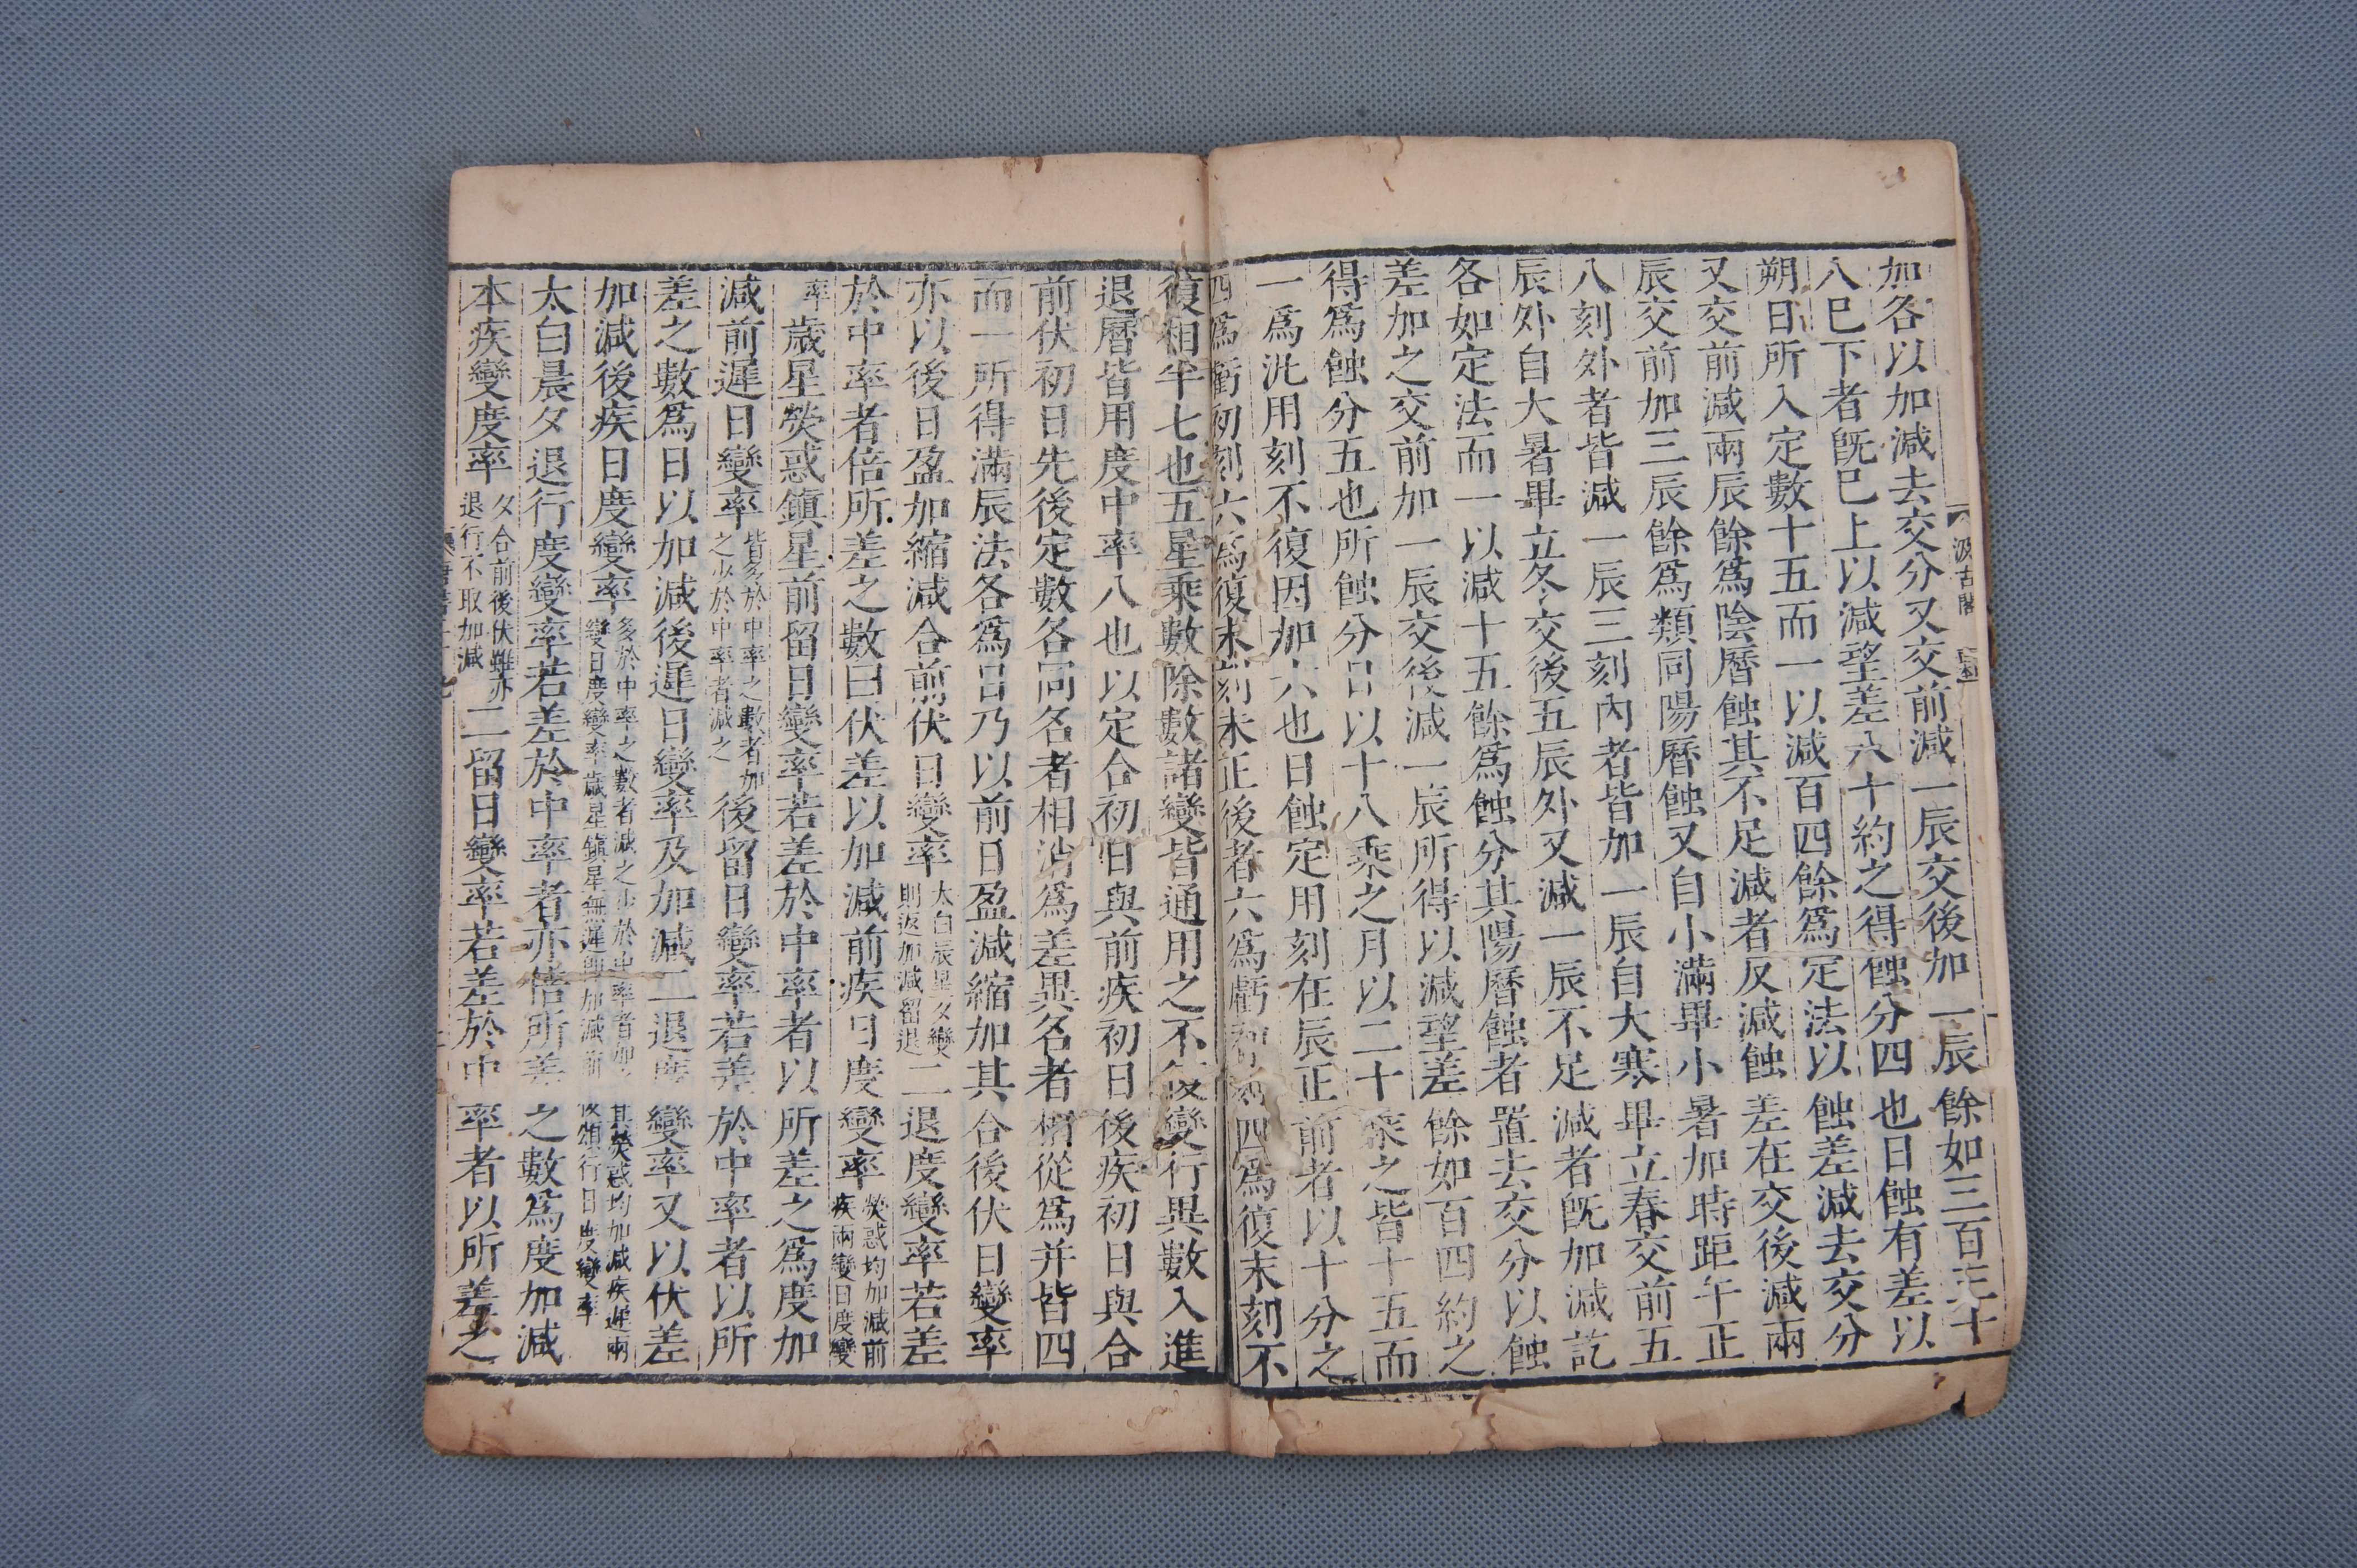 汲古閣
加各以加減去交分又交前減一辰交後加一辰餘如三百三十
八巳下者旣巳上以減望差八十約之得蝕分四也日蝕有差以
朔日所入定數十五而一以減百四餘爲定法以蝕差減去交分
又交前減兩辰餘爲陰曆蝕其不足減者反減蝕差在交後減兩
辰交前加三辰餘爲類同陽曆蝕又自小滿畢小暑加時距午正
八刻外者皆減一辰三刻內者皆加一辰自大寒畢立春交前五
辰外自大暑畢立冬交後五辰外又減一辰不足減者旣加減訖
各如定法而一以減十五餘爲蝕分其陽曆蝕者置去交分以蝕
差加之交前加一辰交後減一辰所得以減望差餘如百四約之
得爲蝕分五也所蝕分日以十八乘之月以二十乘之皆十五而
一爲汎用刻不復因加六也日蝕定用刻在辰正前者以十分之
四爲虧初刻六爲復末刻未正後者六爲虧初刻四爲復末刻不
復相半七也五星乘數除數諸變皆通用之不復變行異數入進
退曆皆用度中率八也以定合初日與前疾初日後疾初日與合
前伏初日先後定數各同名者相消爲差異名者相從爲并皆四
而一所得滿辰法各爲日乃以前日盈減縮加其合後伏日變率
亦以後日盈加縮減合前伏日變率太白辰星夕變則返加減留退二退度變率若差
於中率者倍所差之數曰伏差以加減前疾日度變率熒惑均加減前疾兩變日度變
率歲星熒惑鎭星前留日變率若差於中率者以所差之爲度加
減前遲日變率皆多於中率之數者加之少於中率者減之後留日變率若差於中率者以所
差之數爲日以加減後遲日變率及加減二退度變率又以伏差
加減後疾日度變率多於中率之數者減之少於中率者加之其熒惑均加減疾遲兩變日度變率歲星鎭星無遲即加減前後順行日度變率
太白晨夕退行度變率若差於中率者亦倍所差之數爲度加減
本疾變度率夕合前後伏雖亦退行不取加減二留日變率若差於中率者以所差之